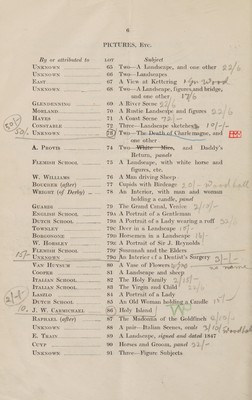 6
PICTURES, Etc.
By or attributed to LOT Subject
Unknown 65 Two—A Landscape, and one other 22/6
Unknown 66 Two—Landscapes
East 67 A View at Kettering
Unknown 68 Two—A Landscape, figures, and bridge,
and one other
Glendenning 69 A River Scene 22/6
Morland 70 A Rustic Landscape and figures 22/6
Hayes 71 A Coast Scene 72/-
Constable 72 Three—Landscape sketches
Unknown 73 Two—The Death of Charlemagne, and
one other
A. Provis 74 Two White Mice, and Daddy's
Return, panels
Flemish School 75 A Landscape, with white horse and
figures, etc.
W. Williams 76 A Man driving Sheep
Boucher (after) 77 Cupids with Birdcage
Wright (of Derby) 78 An Interior, with man and woman
holding a candle, panel
Guardi 79 The Grand Canal, Venice
English School 79A A Portrait of a Gentleman
Dutch School 79B A Portrait of a Lady wearing a ruff
Townley 79C Deer in a Landscape
Borgognone 79D Horsemen in a Landscape
W. Horsley 79E A Portrait of Sir J. Reynolds
Flemish School 79F Susannah and the Elders
Unknown 79G An Interior of a Dentist's Surgery 2/-/-
Van Huysum 80 A Vase of Flowers
Cooper 81 A Landscape and sheep
Italian School 82 The Holy Family
Italian School 83 The Virgin and Child
Laszlo 84 A Portrait of a Lady
Dutch School 85 An Old Woman holding a Candle
J. W. Carmichael 86 Holy Island
Raphael (after) 87 The Madonna of the Goldfinch
Unknown 88 A pair—Italian Scenes, ovals
E. Train 89 A Landscape, signed and dated 1847
Cuyp 90 Horses and Groom, panel 22/-
Unknown 91 Three—Figure Subjects